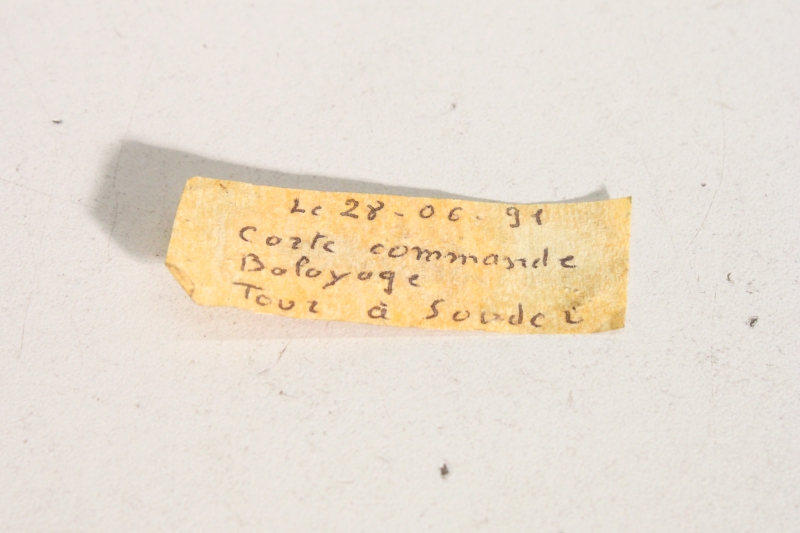 Le 28-06-91
Carte commande
Balayage
Tour à Souder